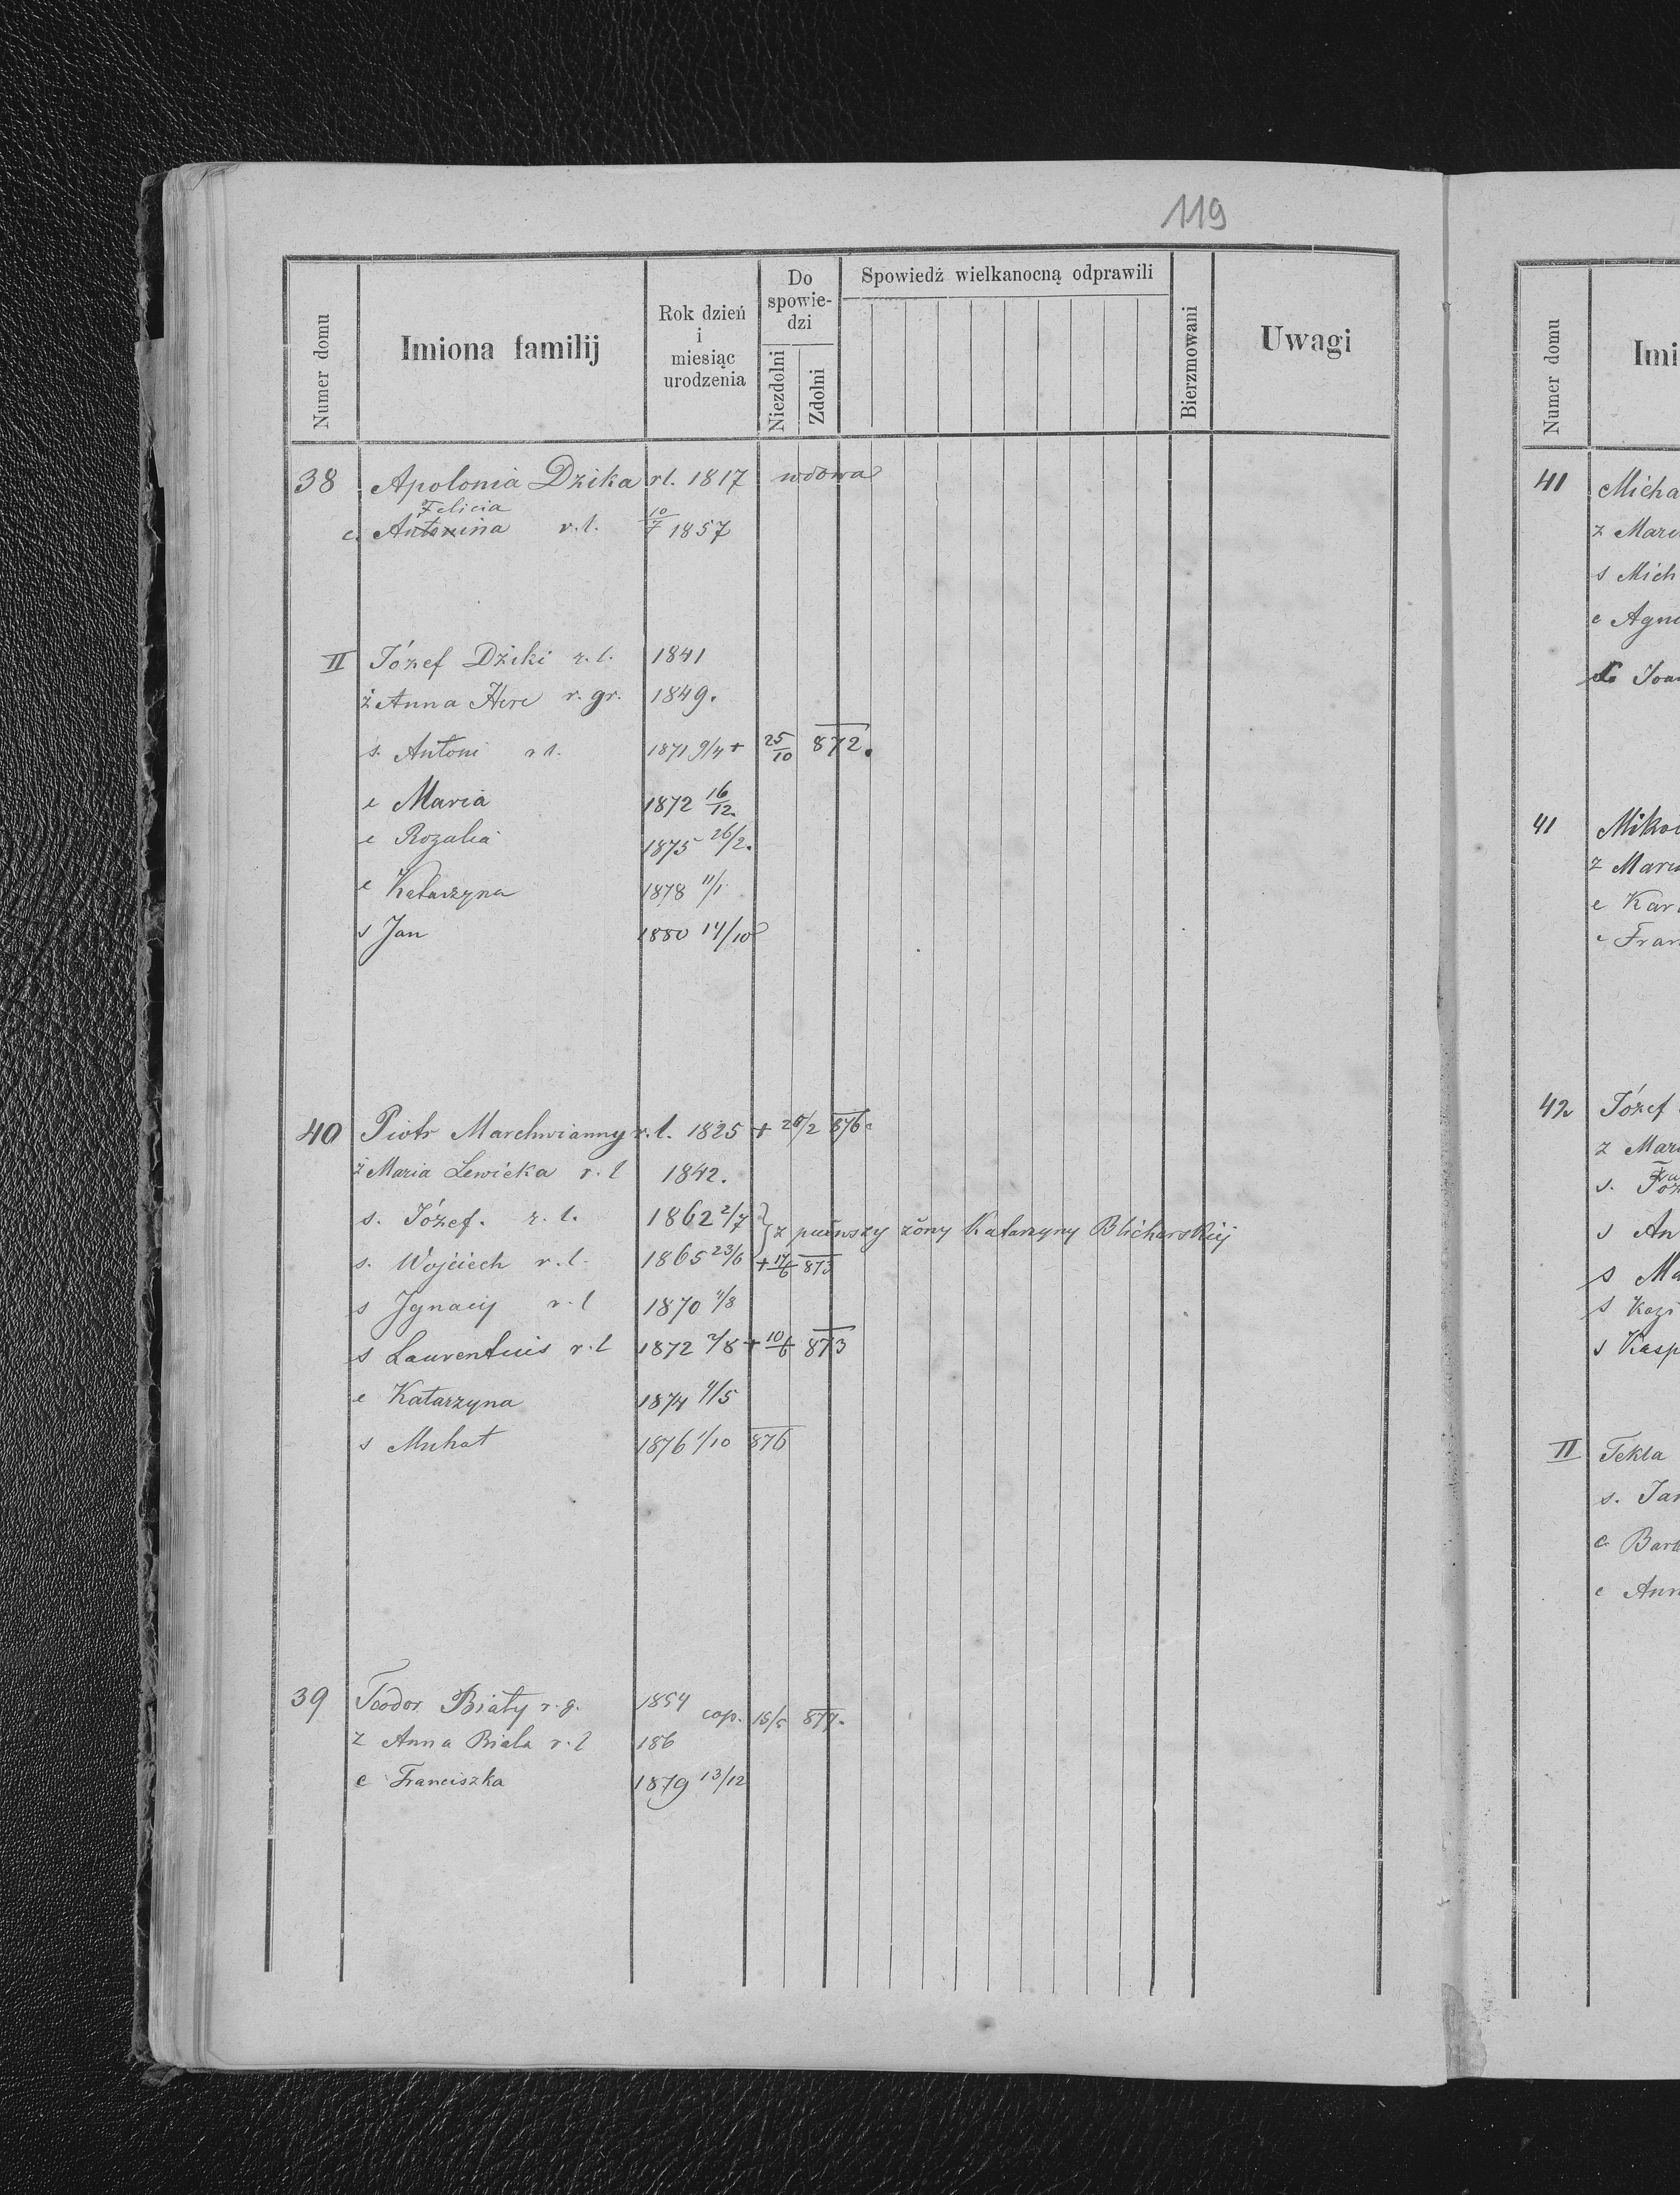 119
Numer domu
Imiona familij
Rok dzień i miesiąc urodzenia
Do spowiedzi
Niezdolni
Zdolni
Spowiedź wielkanocną odprawili
Bierzmowani
Uwagi
38 Apolonia Dzika rl. 1817 wdowa
Felicia
c. Antonina r.l. 10/7 1857
II Józef Dziki r.l. 1841
ż Anna r. gr. 1849.
s. Antoni r l. 1871 9/4 + 25/10 872.
c Maria 1872 16/12.
c Rozalia 1875 26/2.
c Katarzyna 1878 11/1
s Jan 1880 14/10
40 Piotr Marchwianny r.l. 1825 + /2 876
ż Maria Lewicka r.l 1842.
s. Józef. r.l. 1862 2/7
z pierwszy żony Katarzyny Blicharskiij
s. Wojciech r.l. 1865 23/6 + 17/6 873
s Jgnacij r.l 1870 /8
s Laurentius r.l 1872 /8 + 10/6 873
c Katarzyna 1874 /5
s Michał 1876 1/10 876
39 Teodor Biały r.g. 1854
cop. 15/5 877.
z Anna Biala r.l 186
c Franciszka 1879 13/12
Numer domu
Imi
41 Micha
z Mar
s Mich
c Agn
Joa
41 Miko
z Mar
c Kar
c Fran
42 Józef
z Mar
s. Józ
s An
s Ma
s Kazi
s Kasp
II Tekla
s. Jan
c Barb
c Ann